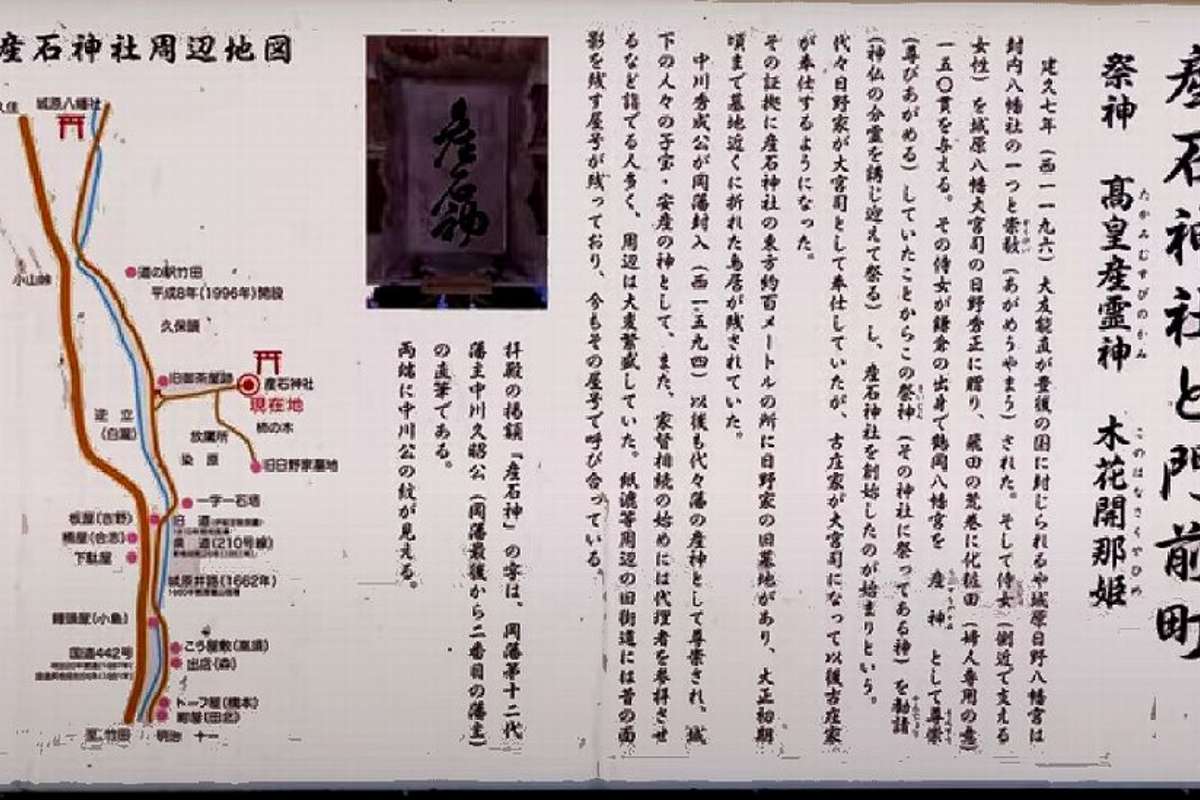 産石神社と門前町
祭神 髙皇産霊神 木花開那姫
たかみむすびのかみ
このはなさくやひめ
建久七年(西一一九六)大友能直が豊後の国に封じられるや城原日野八幡宮は
封内八幡社の一つと崇敬(あがめうやまう)された。そして侍女(側近で支える
女性)を城原八幡大宮司の日野秀正に贈り、飛田の荒巻に化粧田(婦人専用の意)
一五〇貫を与える。その侍女が鎌倉の出身で鶴岡八幡宮を 産神 として尊崇
(尊びあがめる)していたことからこの祭神(その神社に祭ってある神)を勧請
(神仏の分霊を請じ迎えて祭る)し、産石神社を創始したのが始まりという。
代々日野家が大宮司として奉仕していたが、古庄家が大宮司になって以後古庄家
が奉仕するようになった。
その証拠に産石神社の東方約百メートルの所に日野家の旧墓地があり、大正初期
頃まで墓地近くに折れた鳥居が残されていた。
中川秀成公が岡藩封入(西一五九四)以後も代々藩の産神として尊崇され、城
下の人々の子宝・安産の神として、また、家督相続の始めには代理者を参拝させ
るなど詣でる人多く、周辺は大変繁盛していた。紙漉等周辺の旧街道には昔の面
影を残す屋号が残っており、今もその屋号で呼び合っている。
産石神
拝殿の掲額「産石神」の字は、岡藩第十二代
藩主中川久昭公(岡藩最後から二番目の藩主)
の直筆である。
両端に中川公の紋が見える。
産石神社周辺地図
久住
城原八幡社
小山峠
道の駅竹田
平成8年(1996年)開設
久保頭
旧御茶屋跡
産石神社
現在地
柿の木
逆 立
(白瀧)
放鷹所
染 原
旧日野家墓地
一字一石塔
板屋(吉野)
旧 道
桶屋(合志)
県 道(210号線)
下駄屋
城原井路(1662年)
饅頭屋(小島)
国道442号
こう屋敷(高須)
出店(森)
トーフ屋(橋本)
菊屋(田北)
至 竹田
明治 十一